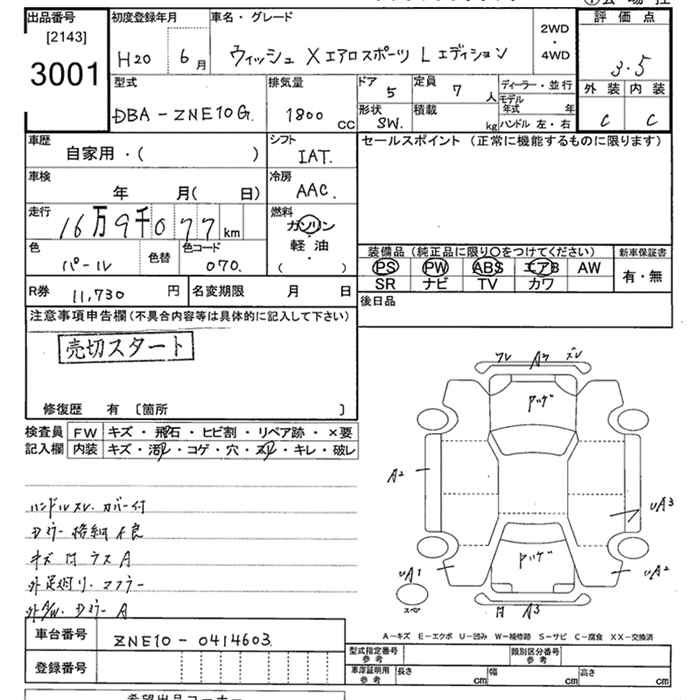 出品番号 初度登録年月 車名・グレード 評価点
[2143]
3001
H20 6月 ウィッシュ X エアロスポーツ L エディション 2WD・4WD 3.5
型式 排気量 ドア 5 定員 7人 ディーラー・並行 外装 内装
モデル年式 年
DBA-ZNE10G. 1800 CC 形状 SW. 積載 kg ハンドル 左・右 C C
車歴 シフト セールスポイント (正常に機能するものに限ります)
自家用・( ) IAT.
車検 冷房
年 月( 日) AAC.
走行 燃料
16万9千077 km ガソリン・軽油
( )
色 色替 色コード 装備品 (純正品に限り○をつけてください) 新車保証書
パール 070. PS PW ABS エアB AW 有・無
SR ナビ TV カワ
R券 11,730 円 名変期限 月 日 後日品
注意事項申告欄(不具合内容等は具体的に記入して下さい)
売切スタート
修復歴 有 〔箇所 〕
検査員 FW キズ・飛石・ヒビ割・リペア跡・×要
記入欄 内装 キズ・汚レ・コゲ・穴・スレ・キレ・破レ
ハンドルスレ.カバー付
キズ 凹 ラス A
ワレ ズレ
A2
UA3
UA1
UA2
スペア
凹 A3
A-キズ E-エクボ U-凹み W-補修跡 S-サビ C-腐食 XX-交換済
車台番号 ZNE10-0414603
登録番号
型式指定番号 参考 類別区分番号 参考
車庫証明用 参考 長さ cm 幅 cm 高さ cm
希望出品コーナー